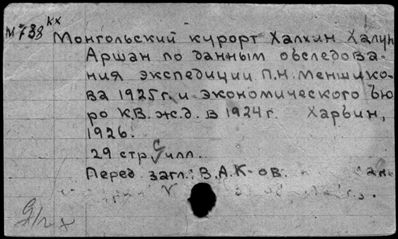 М738 кк
Монгольский курорт Халхин Халун
Аршан по данным обследова-
ния экспедиции П.Н. Меншико-
ва 1925г. и экономического Бю
ро К.В.ж.д. в 1924г. Харьин,
1926.
29 стр. С илл.
Перед. загл.: В.А.К-ов.